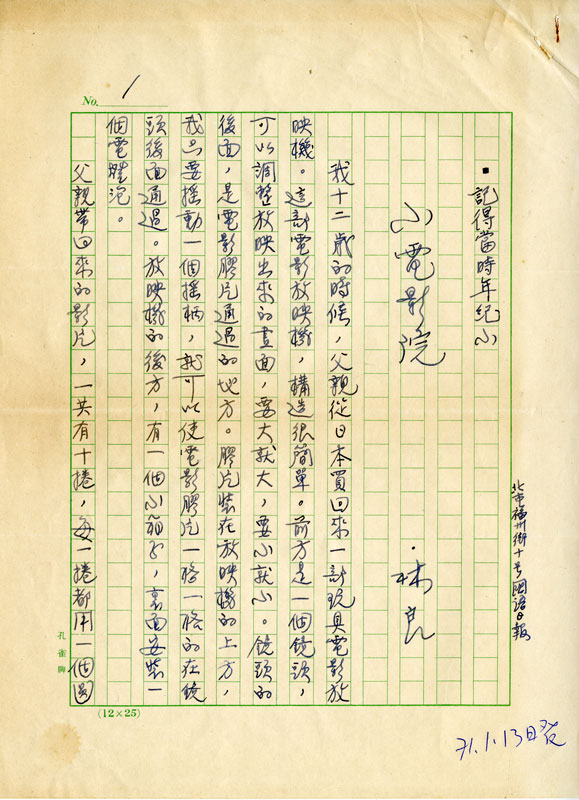 No. 1
北市福州街十号國語日報
▪記得當時年紀小
小電影院
▪林良
我十二歲的時候，父親從日本買回來一部玩具電影放
映機。這部電影放映機，構造很簡單。前方是一個鏡頭，
可以調整放映出來的畫面，要大就大，要小就小。鏡頭的
後面，是電影膠片通過的地方。膠片裝在放映機的上方，
我只要搖動一個搖柄，就可以使電影膠片一格一格的在鏡
頭後面通過。放映機的後方，有一個小箱子，裏面安裝一
個電燈泡。
父親帶回來的影片，一共有十捲，每一捲都用一個圓
孔雀牌
(12×25)
71.1.13日發